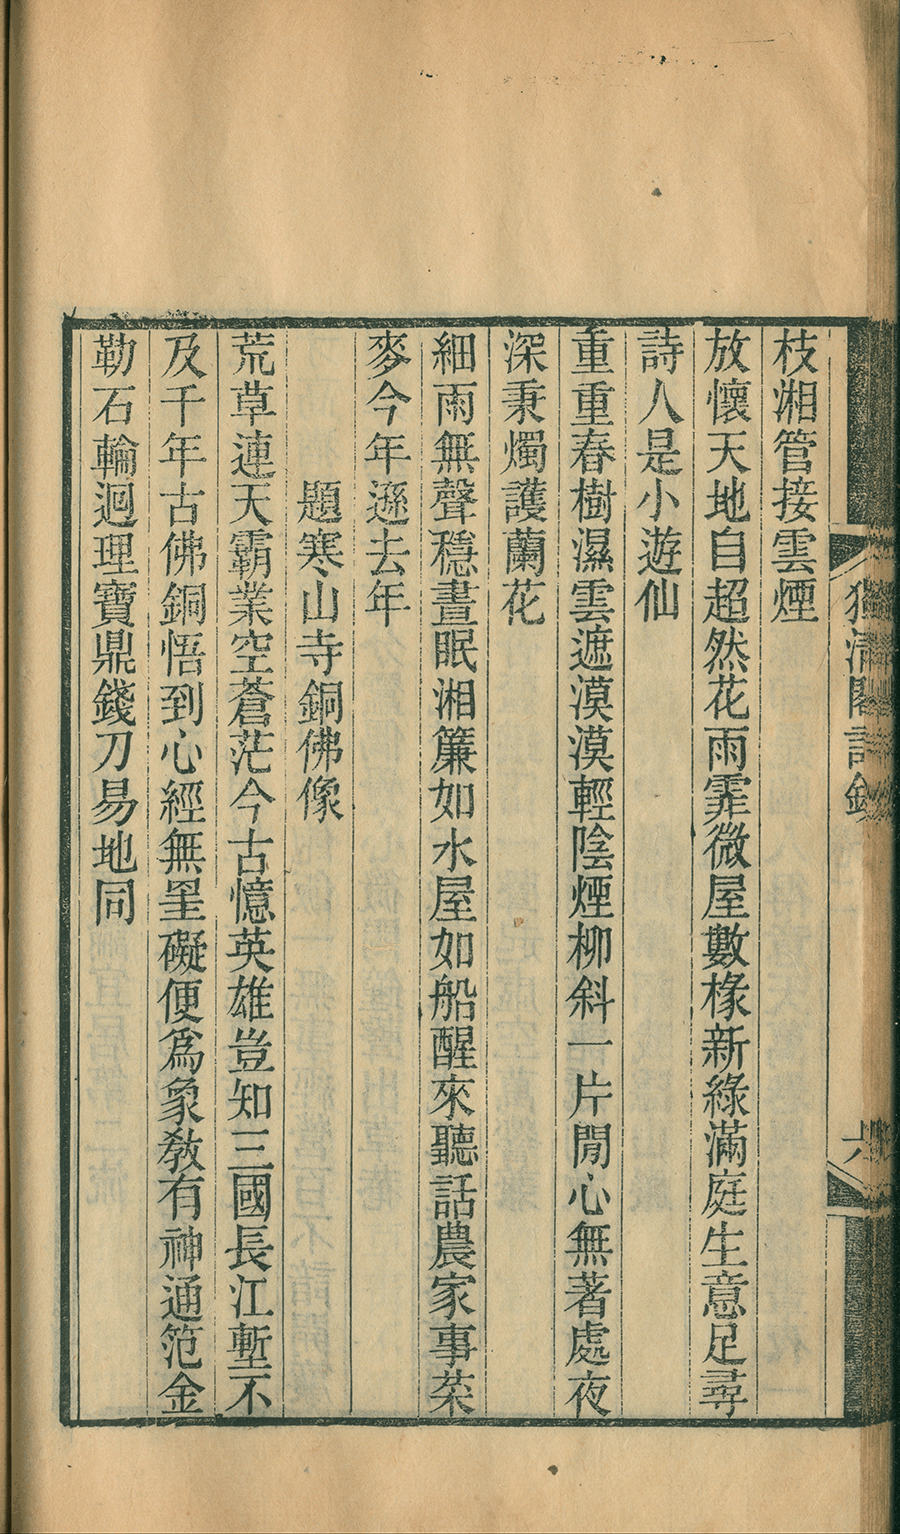 枝湘管接雲煙
放懷天地自超然花雨霏微屋數椽新綠滿庭生意足尋
詩人是小遊仙
重重春樹濕雲遮漠漠輕陰煙柳斜一片閒心無著處夜
深秉燭護蘭花
細雨無聲穩晝眠湘簾如水屋如船醒來聽話農家事菜
麥今年遜去年
題寒山寺銅佛像
荒草連天霸業空蒼茫今古憶英雄豈知三國長江塹不
及千年古佛銅悟到心經無罣礙便爲象教有神通范金
勒石輪迴理寶鼎錢刀易地同